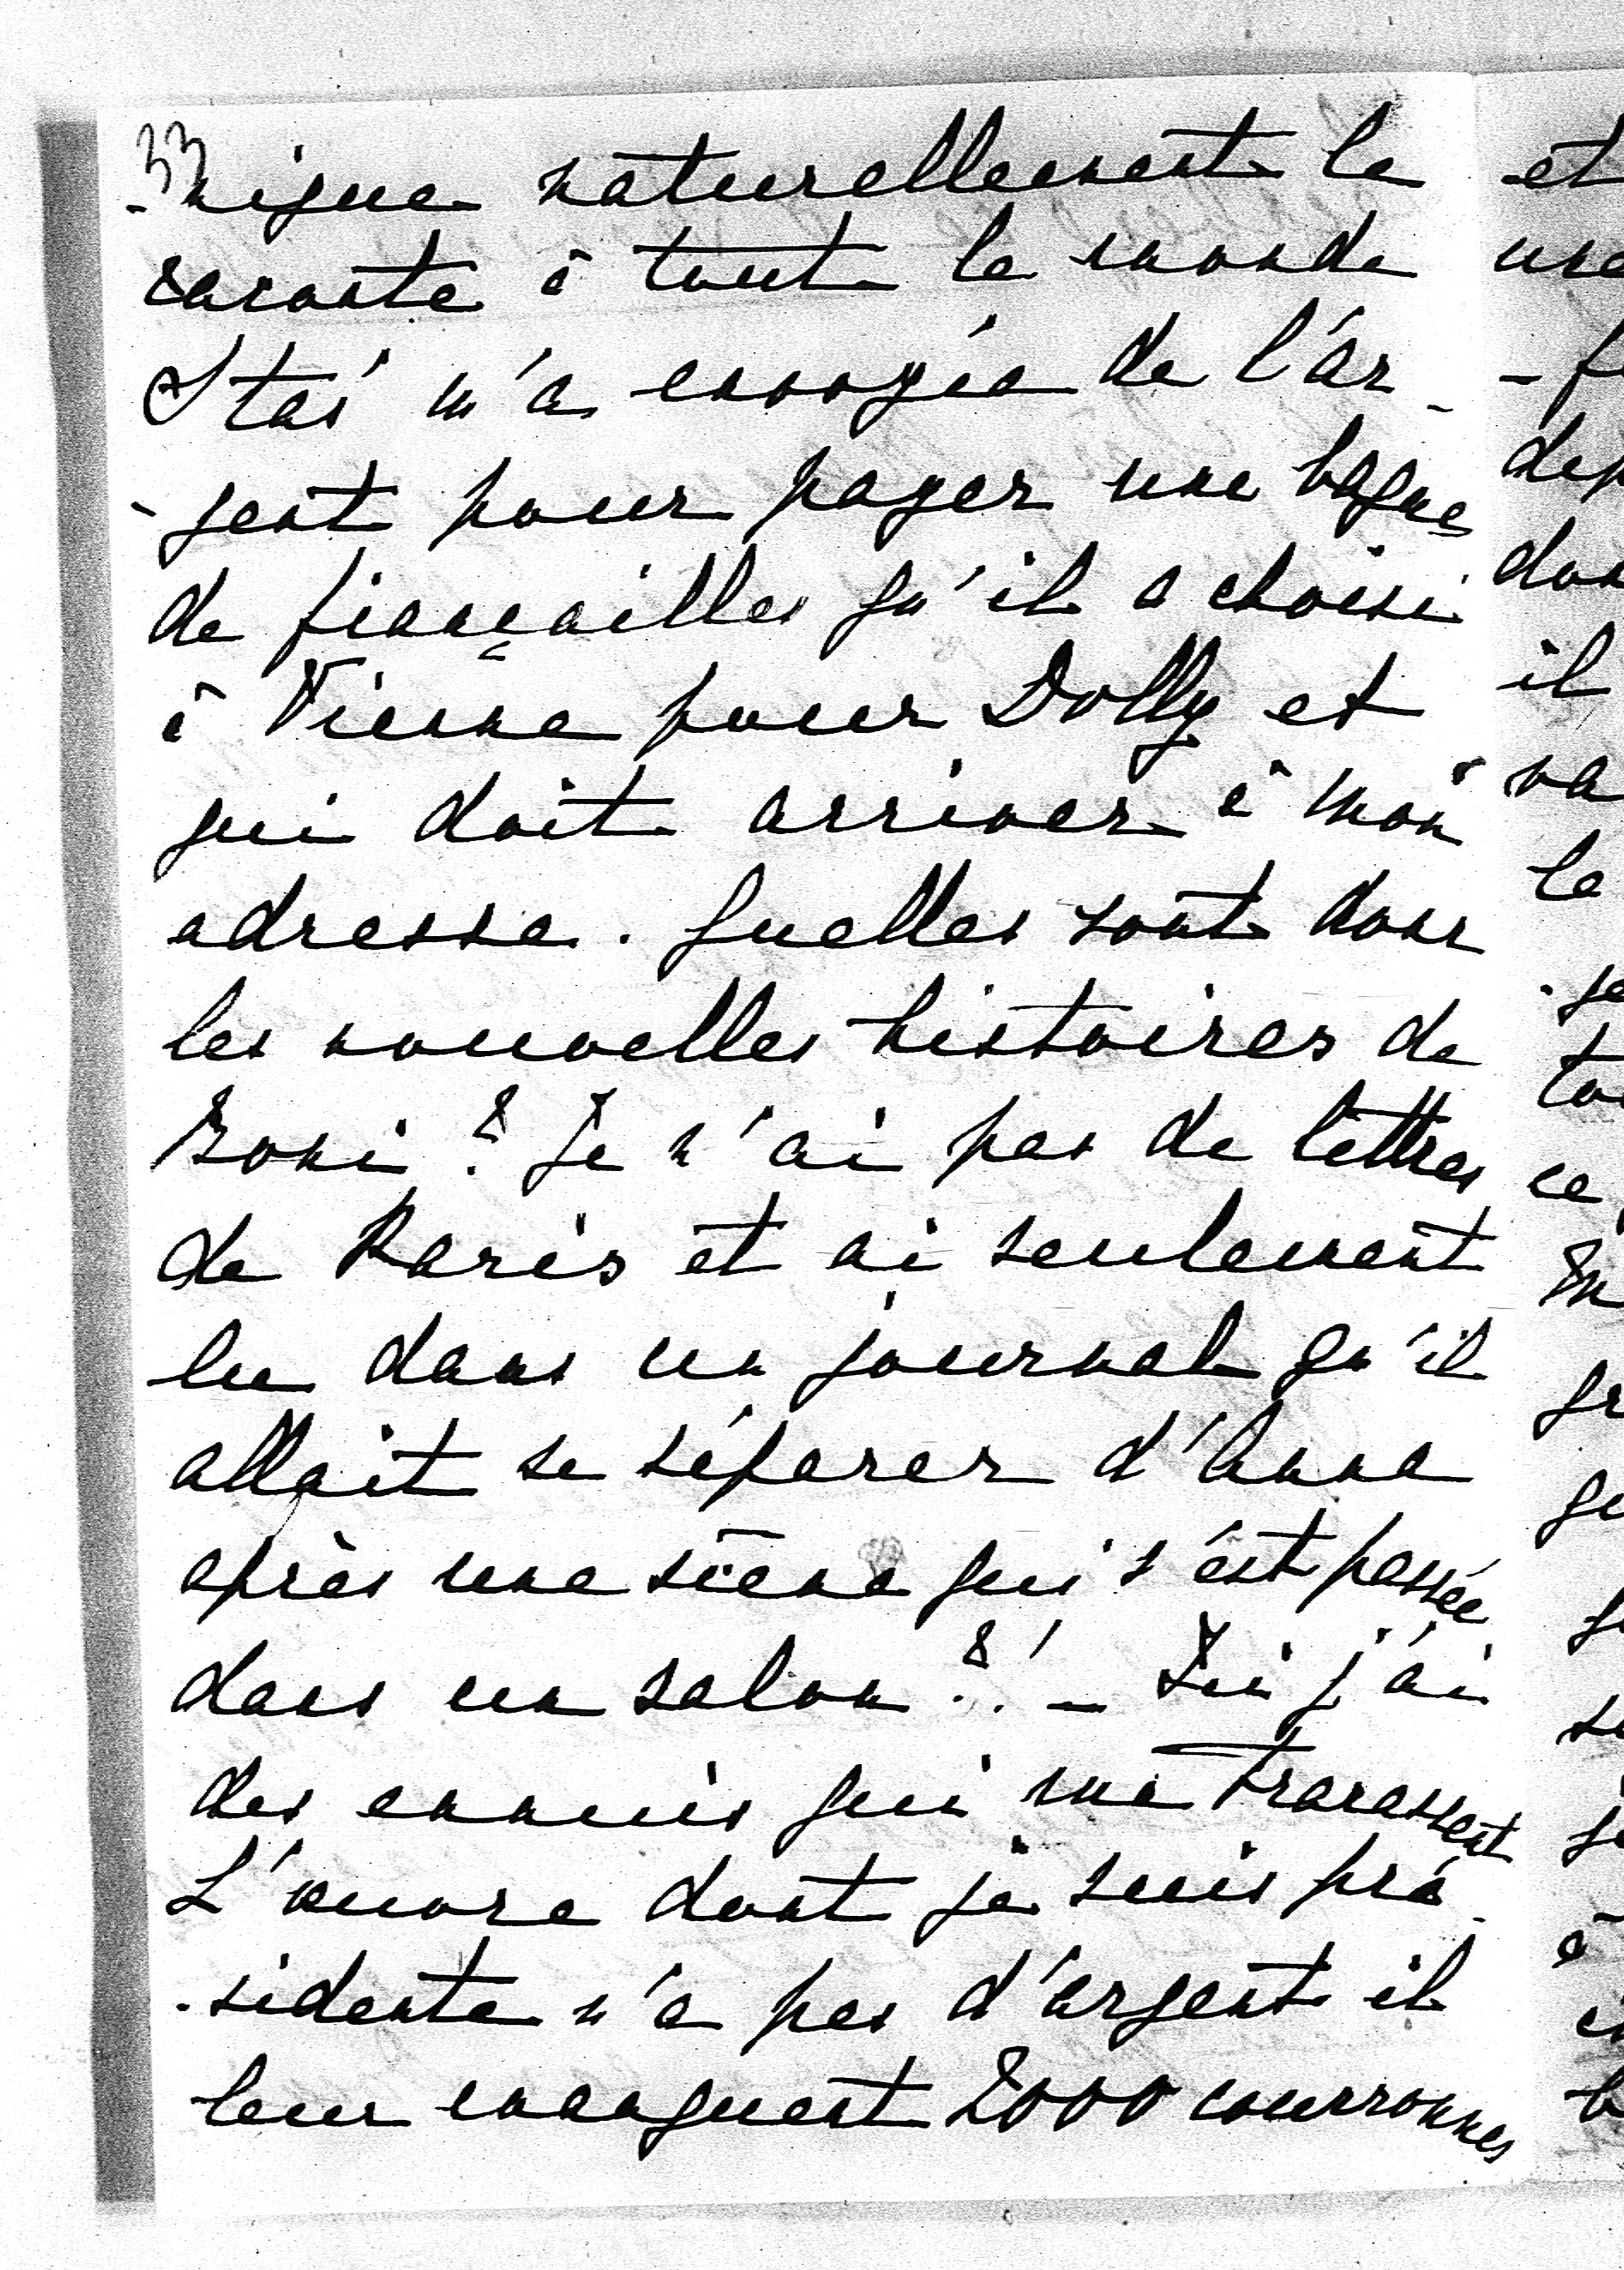 33
-nique naturellement le
raconte à tout le monde
Stas' m'a envoyée de l'ar-
-gent pour payer une bague
de fiançailles qu'il a choisi
à Vienne pour Dolly et
qui doit arriver à mon
adresse. Quelles sont donc
les nouvelles histoires de
Boni ? Je n'ai pas de lettres
de Paris et ai seulement
lu dans un journal qu'il
allait se séparer d'Anna
après une scène qui s'est passée
dans un salon ?! — Ici j'ai
des ennuis qui me tracassent
L'œuvre dont je suis pré-
-sidente n'a pas d'argent il
leur manquent 2000 courronnes